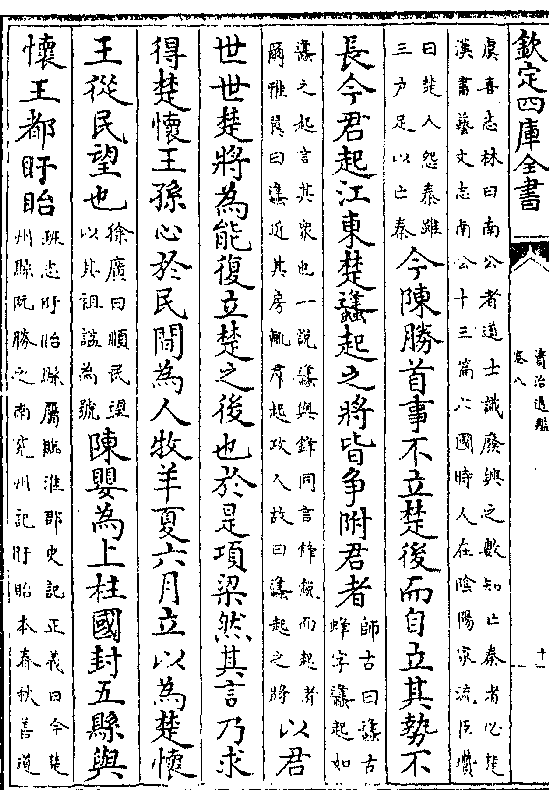 欽定四庫全書
資治通鑑
卷八
十一
虞喜志林曰南公者道士識廢興之數知亡秦者必楚
漢書藝文志南公十三篇六國時人在陰陽家流臣瓚
曰楚人怨秦雖
三户足以亡秦
今陳勝首事不立楚後而自立其勢不
長今君起江東楚蠭起之將皆争附君者
師古曰蠭古
蜂字蠭起如
蠭之起言其衆也一說蠭與鋒同言鋒銳而起者
爾雅翼曰蠭近其房輒羣起攻人故曰蠭起之將
以君
世世楚將為能復立楚之後也於是項梁然其言乃求
得楚懷王孫心於民間為人牧羊夏六月立以為楚懷
王從民望也
徐廣曰順民望
以其祖諡為號
陳嬰為上柱國封五縣與
懷王都盱眙
班志盱眙縣屬臨淮郡史記正義曰今楚
州縣阮勝之南兖州記盱眙本春秋善道